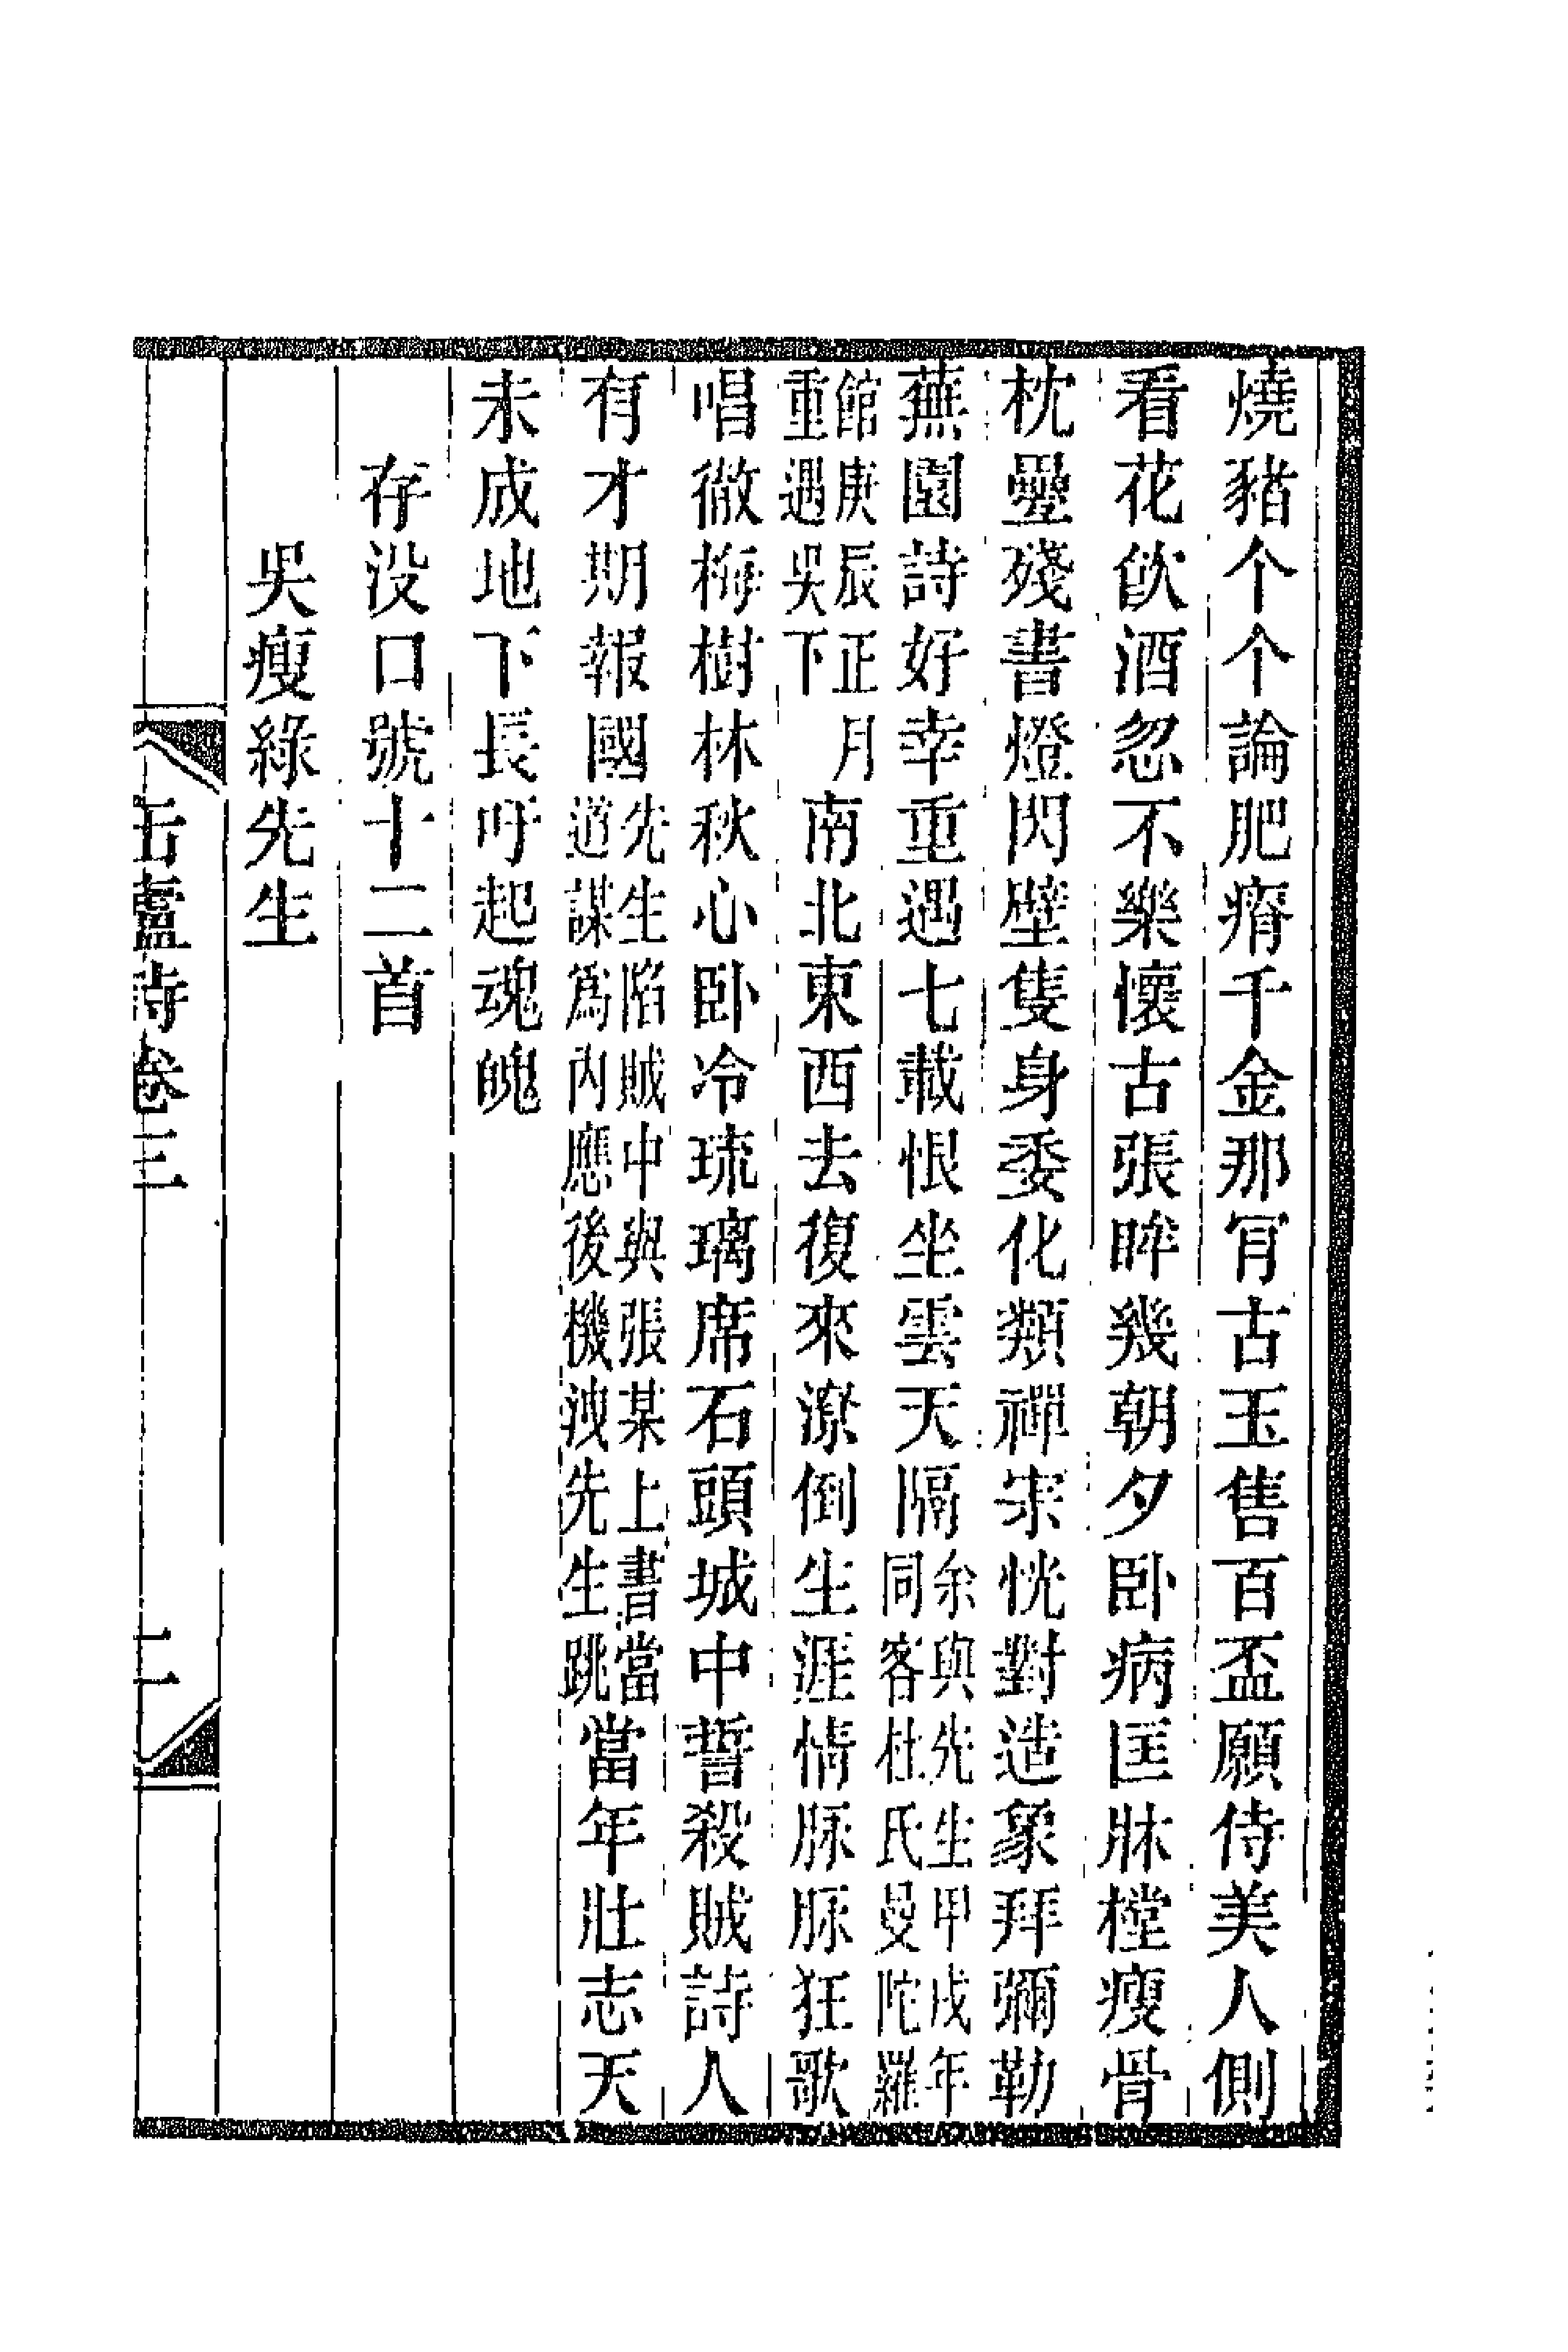 燒豬个个論肥瘠千金那肎古玉售百盃願侍美人側
看花飲酒忽不樂懷古張眸幾朝夕卧病匡牀樘瘦骨
枕壘殘書燈閃壁隻身委化類禪宗恍對造象拜彌勒
蕪園詩好幸重遇七載恨坐雲天隔余與先生甲戌年同客杜氏曼陀羅
館庚辰正月重遇吳下南北東西去復來潦倒生涯情脉脉狂歌
唱徹梅樹林秋心卧冷琉璃席石頭城中誓殺賊詩人
有才期報國先生陷賊中與張某上書當道謀爲內應後機洩先生跳當年壯志天
未成地下長吁起魂魄
存没口號十二首
吳瘦綠先生
缶廬詩卷三
二